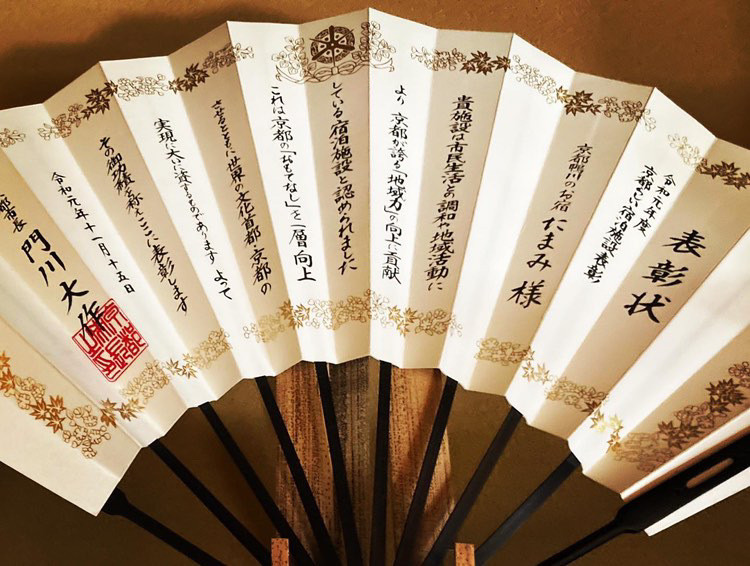 表彰状
令和元年度
京都らしい宿泊施設表彰
京都鴨川のお宿 たまみ 様
貴施設は市民生活との調和や地域活動に
より 京都が誇る「地域力」の向上に貢献
している宿泊施設と認められました
これは京都の「おもてなし」を一層向上
させるとともに世界の文化首都・京都の
実現に大いに資するものであります よって
その御功績を称えここに表彰します
令和元年十一月十五日
都市長 門川大作